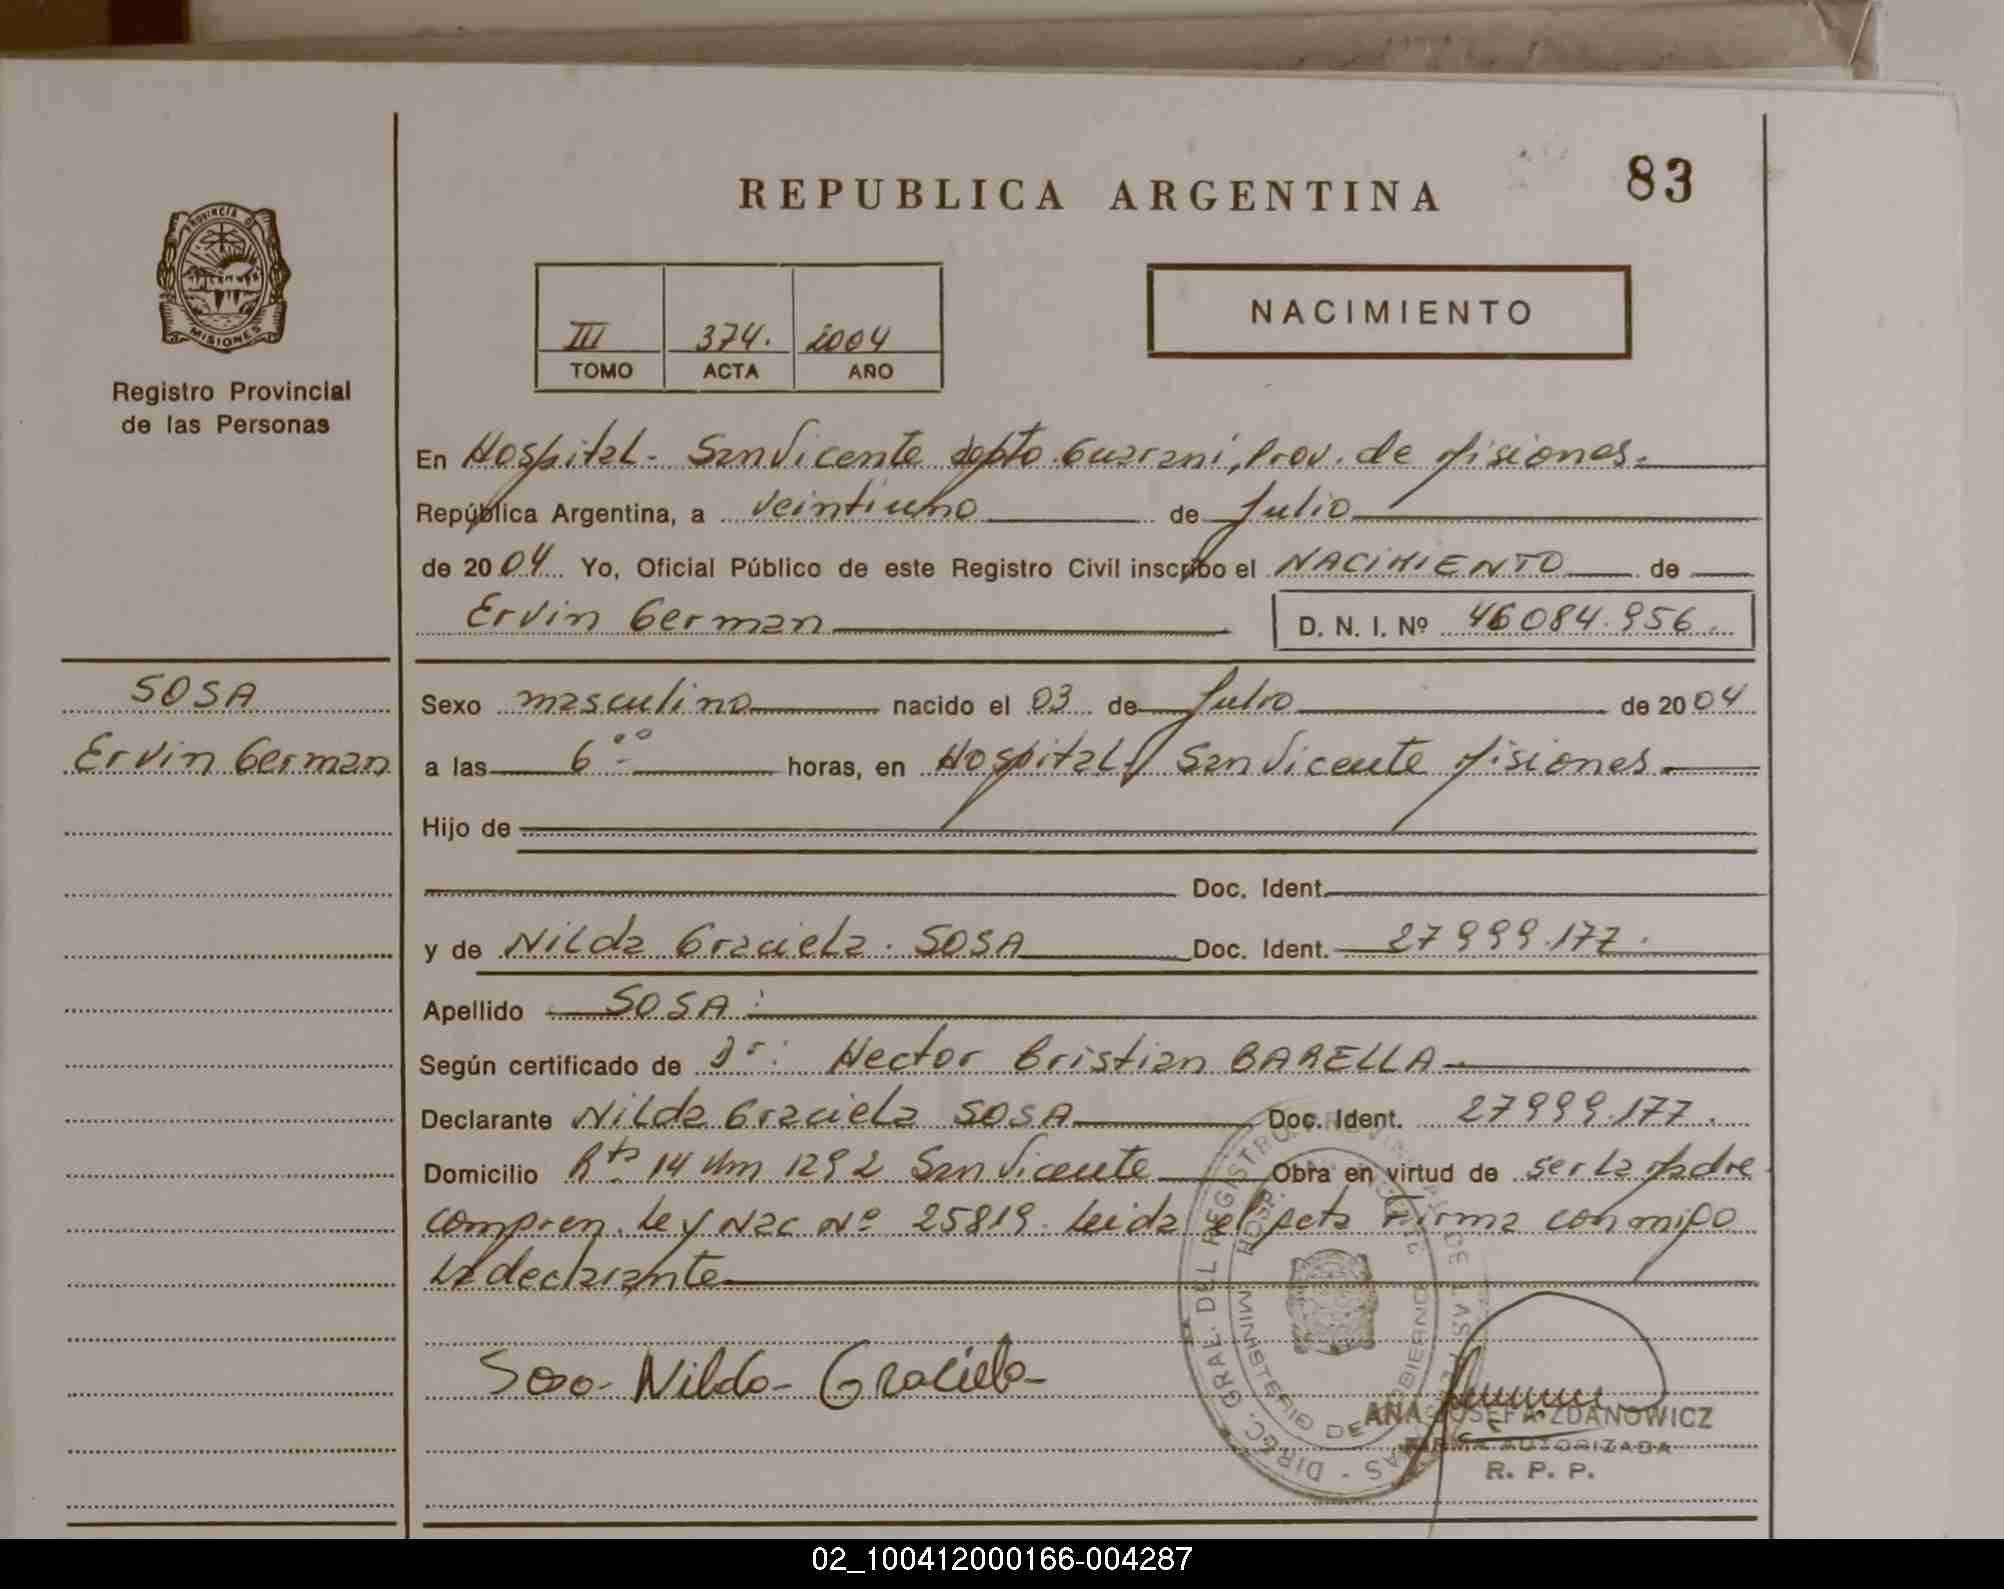 REPUBLICA ARGENTINA
83
PROVINCIA DE
MISIONES
Registro Provincial
de las Personas
III 374. 2004
TOMO ACTA AÑO
NACIMIENTO
En Hospital- San Vicente dpto Guarani, Prov. de Misiones.
República Argentina, a veintiuno de Julio
de 2004 Yo, Oficial Público de este Registro Civil inscribo el NACIMIENTO de
Ervin German D. N. I. Nº 46084.956.
SOSA
Ervin German
Sexo masculino nacido el 03 de Julio de 2004
a las 6°° horas, en Hospital San Vicente Misiones
Hijo de
Doc. Ident.
y de Nilda Graciela. SOSA Doc. Ident. 27999.177.
Apellido SOSA
Según certificado de Dr: Hector Cristian BARELLA
Declarante Nilda Graciela SOSA Doc. Ident. 27999.177.
Domicilio Rta 14 Km 1292 San Vicente Obra en virtud de ser la Madre
compren. Ley Nac Nº 25819. Leida el Acta Firma conmigo
la declarante
Sosa- Nilda- Graciela-
DIREC. GRAL. DEL REGISTRO PROVINCIAL DE LAS PERSONAS
MINISTERIO DE GOBIERNO
HOSP.
ANA JOSEFA ZDANOWICZ
FIRMA AUTORIZADA
R. P. P.
02_100412000166-004287